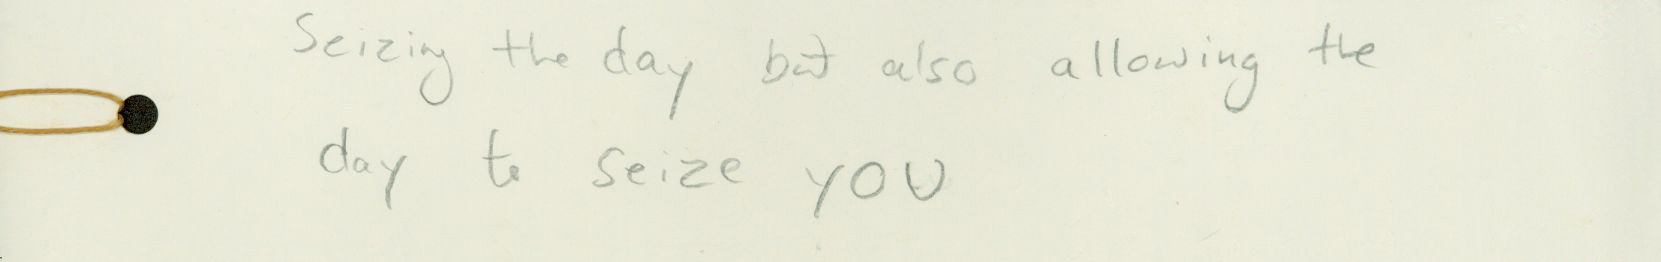 Seizing the day but also allowing the
day to seize YOU